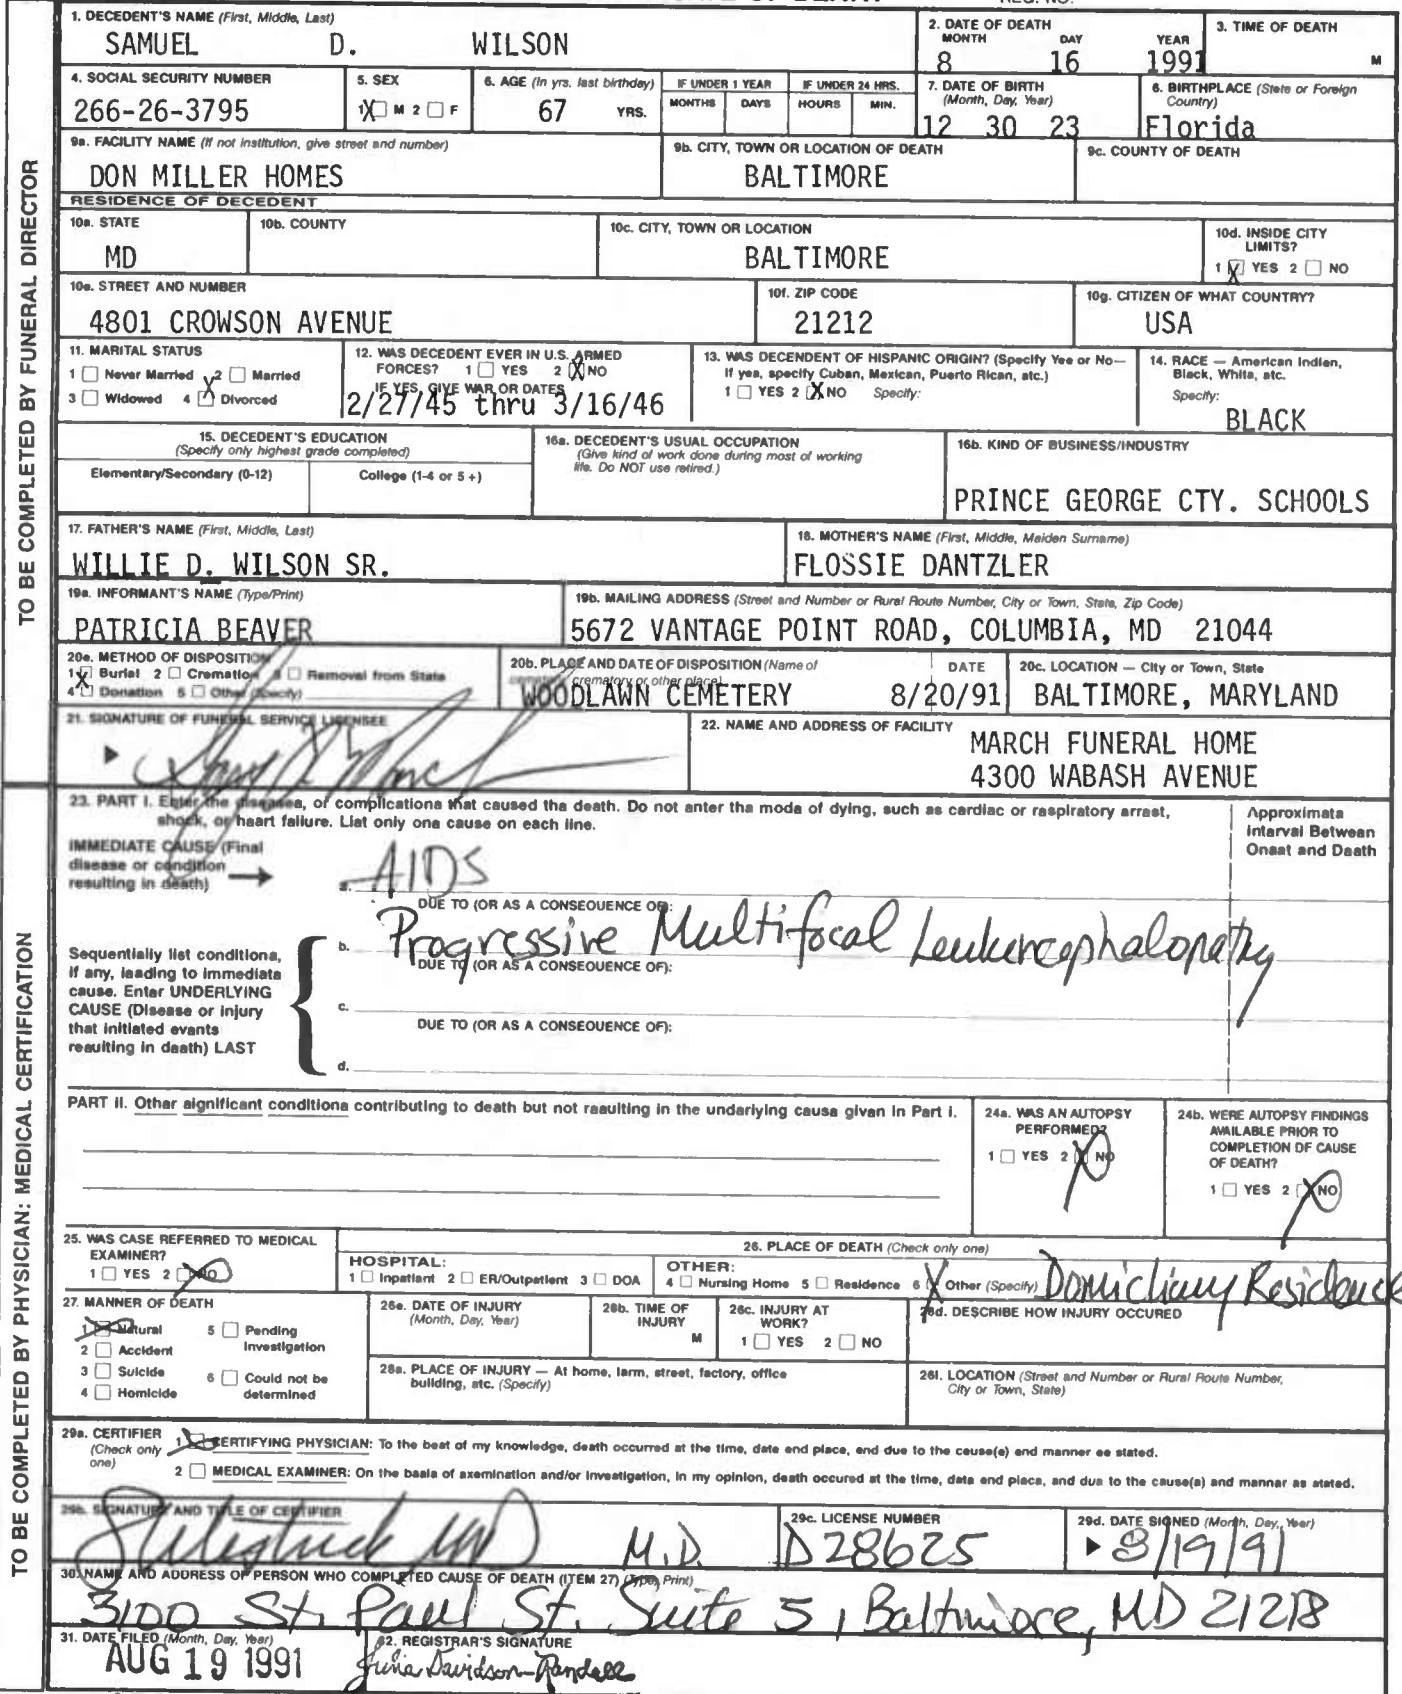 1. DECEDENT'S NAME (First, Middle, Last)
SAMUEL D. WILSON
2. DATE OF DEATH
MONTH DAY YEAR
8 16 1991
3. TIME OF DEATH
M
4. SOCIAL SECURITY NUMBER
266-26-3795
5. SEX
1 X M 2 F
6. AGE (In yrs. last birthday)
67 YRS.
IF UNDER 1 YEAR
MONTHS DAYS
IF UNDER 24 HRS.
HOURS MIN.
7. DATE OF BIRTH
(Month, Day, Year)
12 30 23
8. BIRTHPLACE (State or Foreign
Country)
Florida
9a. FACILITY NAME (If not institution, give street and number)
DON MILLER HOMES
9b. CITY, TOWN OR LOCATION OF DEATH
BALTIMORE
9c. COUNTY OF DEATH
RESIDENCE OF DECEDENT
10a. STATE
MD
10b. COUNTY
10c. CITY, TOWN OR LOCATION
BALTIMORE
10d. INSIDE CITY
LIMITS?
1 X YES 2 NO
10e. STREET AND NUMBER
4801 CROWSON AVENUE
10f. ZIP CODE
21212
10g. CITIZEN OF WHAT COUNTRY?
USA
11. MARITAL STATUS
1 Never Married 2 Married
3 Widowed 4 X Divorced
12. WAS DECEDENT EVER IN U.S. ARMED
FORCES? 1 YES 2 X NO
IF YES, GIVE WAR OR DATES
2/27/45 thru 3/16/46
13. WAS DECENDENT OF HISPANIC ORIGIN? (Specify Yes or No—
If yes, specify Cuban, Mexican, Puerto Rican, etc.)
1 YES 2 X NO Specify:
14. RACE — American Indian,
Black, White, etc.
Specify:
BLACK
15. DECEDENT'S EDUCATION
(Specify only highest grade completed)
Elementary/Secondary (0-12) College (1-4 or 5+)
16a. DECEDENT'S USUAL OCCUPATION
(Give kind of work done during most of working
life. Do NOT use retired.)
16b. KIND OF BUSINESS/INDUSTRY
PRINCE GEORGE CTY. SCHOOLS
17. FATHER'S NAME (First, Middle, Last)
WILLIE D. WILSON SR.
18. MOTHER'S NAME (First, Middle, Maiden Surname)
FLOSSIE DANTZLER
19a. INFORMANT'S NAME (Type/Print)
PATRICIA BEAVER
19b. MAILING ADDRESS (Street and Number or Rural Route Number, City or Town, State, Zip Code)
5672 VANTAGE POINT ROAD, COLUMBIA, MD 21044
20a. METHOD OF DISPOSITION
1 X Burial 2 Cremation 3 Removal from State
4 Donation 5 Other (Specify)
20b. PLACE AND DATE OF DISPOSITION (Name of
cemetery, crematory or other place)
DATE
WOODLAWN CEMETERY 8/20/91
20c. LOCATION — City or Town, State
BALTIMORE, MARYLAND
21. SIGNATURE OF FUNERAL SERVICE LICENSEE
22. NAME AND ADDRESS OF FACILITY
MARCH FUNERAL HOME
4300 WABASH AVENUE
TO BE COMPLETED BY FUNERAL DIRECTOR
23. PART I. Enter the diseases, or complications that caused the death. Do not enter the mode of dying, such as cardiac or respiratory arrest,
shock, or heart failure. List only one cause on each line.
Approximate
Interval Between
Onset and Death
IMMEDIATE CAUSE (Final
disease or condition
resulting in death)
a. AIDS
DUE TO (OR AS A CONSEQUENCE OF):
b. Progressive Multifocal Leukencephalopathy
DUE TO (OR AS A CONSEQUENCE OF):
c.
DUE TO (OR AS A CONSEQUENCE OF):
d.
Sequentially list conditions,
if any, leading to immediate
cause. Enter UNDERLYING
CAUSE (Disease or injury
that initiated events
resulting in death) LAST
PART II. Other significant conditions contributing to death but not resulting in the underlying cause given in Part I.
24a. WAS AN AUTOPSY
PERFORMED?
1 YES 2 X NO
24b. WERE AUTOPSY FINDINGS
AVAILABLE PRIOR TO
COMPLETION OF CAUSE
OF DEATH?
1 YES 2 X NO
25. WAS CASE REFERRED TO MEDICAL
EXAMINER?
1 YES 2 X NO
26. PLACE OF DEATH (Check only one)
HOSPITAL:
1 Inpatient 2 ER/Outpatient 3 DOA
OTHER:
4 Nursing Home 5 Residence 6 X Other (Specify) Domiciliary Residence
27. MANNER OF DEATH
1 X Natural 5 Pending
Investigation
2 Accident
3 Suicide 6 Could not be
determined
4 Homicide
28a. DATE OF INJURY
(Month, Day, Year)
28b. TIME OF
INJURY
M
28c. INJURY AT
WORK?
1 YES 2 NO
28d. DESCRIBE HOW INJURY OCCURED
28e. PLACE OF INJURY — At home, farm, street, factory, office
building, etc. (Specify)
28f. LOCATION (Street and Number or Rural Route Number,
City or Town, State)
29a. CERTIFIER
(Check only
one)
1 X CERTIFYING PHYSICIAN: To the best of my knowledge, death occurred at the time, date and place, and due to the cause(s) and manner as stated.
2 MEDICAL EXAMINER: On the basis of examination and/or investigation, in my opinion, death occured at the time, date and place, and due to the cause(s) and manner as stated.
29b. SIGNATURE AND TITLE OF CERTIFIER
M.D.
29c. LICENSE NUMBER
D28625
29d. DATE SIGNED (Month, Day, Year)
8/19/91
30. NAME AND ADDRESS OF PERSON WHO COMPLETED CAUSE OF DEATH (ITEM 27) (Type, Print)
3100 St. Paul St. Suite 5, Baltimore, MD 21218
31. DATE FILED (Month, Day, Year)
AUG 19 1991
32. REGISTRAR'S SIGNATURE
Julia Davidson-Randall
TO BE COMPLETED BY PHYSICIAN: MEDICAL CERTIFICATION